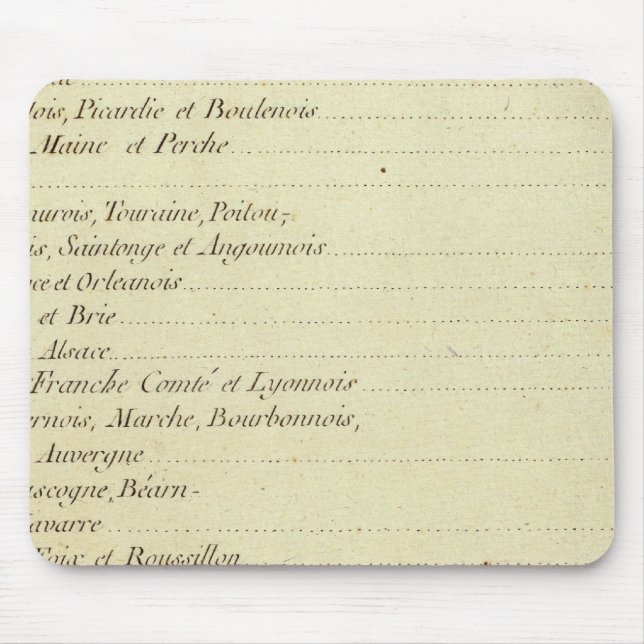 tois, Picardie et Boulenois
Maine et Perche
murois, Touraine, Poitou,
is, Saintonge et Angoumois
ce et Orleanois
et Brie
Alsace
Franche Comté et Lyonnois
ernois, Marche, Bourbonnois,
Auvergne
ascogne, Béarn
avarre
Foix et Roussillon